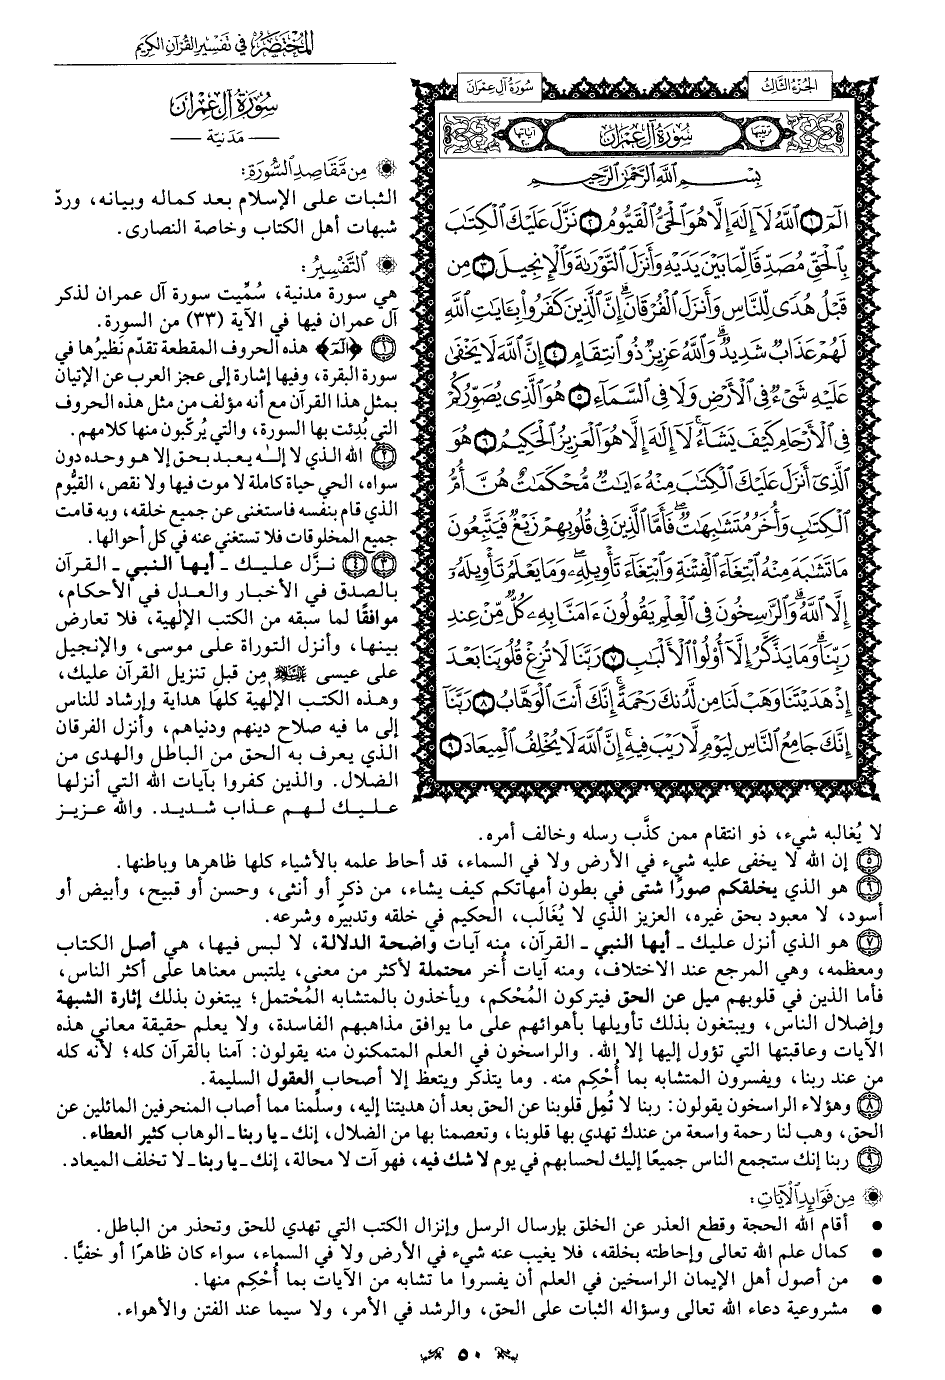 المختصر في تفسير القرآن الكريم
الجزء الثالث
سورة آل عمران
ترتيبها ٣
سورة آل عمران
آياتها ٢٠٠
بسم الله الرحمن الرحيم
الٓمٓ ١ ٱللَّهُ لَآ إِلَٰهَ إِلَّا هُوَ ٱلْحَىُّ ٱلْقَيُّومُ ٢ نَزَّلَ عَلَيْكَ ٱلْكِتَٰبَ
بِٱلْحَقِّ مُصَدِّقًا لِّمَا بَيْنَ يَدَيْهِ وَأَنزَلَ ٱلتَّوْرَىٰةَ وَٱلْإِنجِيلَ ٣ مِن
قَبْلُ هُدًى لِّلنَّاسِ وَأَنزَلَ ٱلْفُرْقَانَ ۗ إِنَّ ٱلَّذِينَ كَفَرُوا۟ بِـَٔايَٰتِ ٱللَّهِ
لَهُمْ عَذَابٌ شَدِيدٌ ۗ وَٱللَّهُ عَزِيزٌ ذُو ٱنتِقَامٍ ٤ إِنَّ ٱللَّهَ لَا يَخْفَىٰ
عَلَيْهِ شَىْءٌ فِى ٱلْأَرْضِ وَلَا فِى ٱلسَّمَآءِ ٥ هُوَ ٱلَّذِى يُصَوِّرُكُمْ
فِى ٱلْأَرْحَامِ كَيْفَ يَشَآءُ ۚ لَآ إِلَٰهَ إِلَّا هُوَ ٱلْعَزِيزُ ٱلْحَكِيمُ ٦ هُوَ
ٱلَّذِىٓ أَنزَلَ عَلَيْكَ ٱلْكِتَٰبَ مِنْهُ ءَايَٰتٌ مُّحْكَمَٰتٌ هُنَّ أُمُّ
ٱلْكِتَٰبِ وَأُخَرُ مُتَشَٰبِهَٰتٌ ۖ فَأَمَّا ٱلَّذِينَ فِى قُلُوبِهِمْ زَيْغٌ فَيَتَّبِعُونَ
مَا تَشَٰبَهَ مِنْهُ ٱبْتِغَآءَ ٱلْفِتْنَةِ وَٱبْتِغَآءَ تَأْوِيلِهِۦ ۗ وَمَا يَعْلَمُ تَأْوِيلَهُۥٓ
إِلَّا ٱللَّهُ ۗ وَٱلرَّٰسِخُونَ فِى ٱلْعِلْمِ يَقُولُونَ ءَامَنَّا بِهِۦ كُلٌّ مِّنْ عِندِ
رَبِّنَا ۗ وَمَا يَذَّكَّرُ إِلَّآ أُو۟لُوا۟ ٱلْأَلْبَٰبِ ٧ رَبَّنَا لَا تُزِغْ قُلُوبَنَا بَعْدَ
إِذْ هَدَيْتَنَا وَهَبْ لَنَا مِن لَّدُنكَ رَحْمَةً ۚ إِنَّكَ أَنتَ ٱلْوَهَّابُ ٨ رَبَّنَآ
إِنَّكَ جَامِعُ ٱلنَّاسِ لِيَوْمٍ لَّا رَيْبَ فِيهِ ۚ إِنَّ ٱللَّهَ لَا يُخْلِفُ ٱلْمِيعَادَ ٩
سورة آل عمران
— مدنية —
من مقاصد السورة:
الثبات على الإسلام بعد كماله وبيانه، وردّ
شبهات أهل الكتاب وخاصة النصارى.
التفسير:
هي سورة مدنية، سُمِّيت سورة آل عمران لذكر
آل عمران فيها في الآية (٣٣) من السورة.
١ ﴿الٓمٓ﴾ هذه الحروف المقطعة تقدّم نَظيرُها في
سورة البقرة، وفيها إشارة إلى عجز العرب عن الإتيان
بمثل هذا القرآن مع أنه مؤلف من مثل هذه الحروف
التي بُدِئت بها السورة، والتي يُركّبون منها كلامهم.
٢ الله الذي لا إلـه يعبد بحق إلا هو وحده دون
سواه، الحي حياة كاملة لا موت فيها ولا نقص، القيُّوم
الذي قام بنفسه فاستغنى عن جميع خلقه، وبه قامت
جميع المخلوقات فلا تستغني عنه في كل أحوالها.
٣ ٤ نزَّل عليك - أيها النبي - القرآن
بالصدق في الأخبار والعدل في الأحكام،
موافقًا لما سبقه من الكتب الإلهية، فلا تعارض
بينها، وأنزل التوراة على موسى، والإنجيل
على عيسى ﷺ مِن قبلِ تنزيل القرآن عليك،
وهذه الكتب الإلهية كلها هداية وإرشاد للناس
إلى ما فيه صلاح دينهم ودنياهم، وأنزل الفرقان
الذي يعرف به الحق من الباطل والهدى من
الضلال. والذين كفروا بآيات الله التي أنزلها
عليك لهم عذاب شديد. والله عزيز
لا يُغالبه شيء، ذو انتقام ممن كذَّب رسله وخالف أمره.
٥ إن الله لا يخفى عليه شيء في الأرض ولا في السماء، قد أحاط علمه بالأشياء كلها ظاهرها وباطنها.
٦ هو الذي يخلقكم صورًا شتى في بطون أمهاتكم كيف يشاء، من ذكرٍ أو أنثى، وحسن أو قبيح، وأبيض أو
أسود، لا معبود بحق غيره، العزيز الذي لا يُغَالَب، الحكيم في خلقه وتدبيره وشرعه.
٧ هو الذي أنزل عليك - أيها النبي - القرآن، منه آيات واضحة الدلالة، لا لبس فيها، هي أصل الكتاب
ومعظمه، وهي المرجع عند الاختلاف، ومنه آيات أُخر محتملة لأكثر من معنى، يلتبس معناها على أكثر الناس،
فأما الذين في قلوبهم ميل عن الحق فيتركون المُحْكم، ويأخذون بالمتشابه المُحْتمل؛ يبتغون بذلك إثارة الشبهة
وإضلال الناس، ويبتغون بذلك تأويلها بأهوائهم على ما يوافق مذاهبهم الفاسدة، ولا يعلم حقيقة معاني هذه
الآيات وعاقبتها التي تؤول إليها إلا الله. والراسخون في العلم المتمكنون منه يقولون: آمنا بالقرآن كله؛ لأنه كله
من عند ربنا، ويفسرون المتشابه بما أُحْكِم منه. وما يتذكر ويتعظ إلا أصحاب العقول السليمة.
٨ وهؤلاء الراسخون يقولون: ربنا لا تُمِل قلوبنا عن الحق بعد أن هديتنا إليه، وسلِّمنا مما أصاب المنحرفين المائلين عن
الحق، وهب لنا رحمة واسعة من عندك تهدي بها قلوبنا، وتعصمنا بها من الضلال، إنك - يا ربنا - الوهاب كثير العطاء.
٩ ربنا إنك ستجمع الناس جميعًا إليك لحسابهم في يوم لا شك فيه، فهو آت لا محالة، إنك - يا ربنا - لا تخلف الميعاد.
من فوائد الآيات:
• أقام الله الحجة وقطع العذر عن الخلق بإرسال الرسل وإنزال الكتب التي تهدي للحق وتحذر من الباطل.
• كمال علم الله تعالى وإحاطته بخلقه، فلا يغيب عنه شيء في الأرض ولا في السماء، سواء كان ظاهرًا أو خفيًّا.
• من أصول أهل الإيمان الراسخين في العلم أن يفسروا ما تشابه من الآيات بما أُحْكِم منها.
• مشروعية دعاء الله تعالى وسؤاله الثبات على الحق، والرشد في الأمر، ولا سيما عند الفتن والأهواء.
٥٠